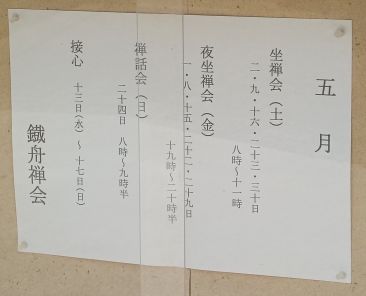 五月
坐禅会（土）
二・九・十六・二十三・三十日
八時～十一時
夜坐禅会（金）
一・八・十五・二十二・二十九日
十九時～二十時半
禅話会（日）
二十四日　八時～九時半
接心　十三日（水）～十七日（日）
鐵舟禅会